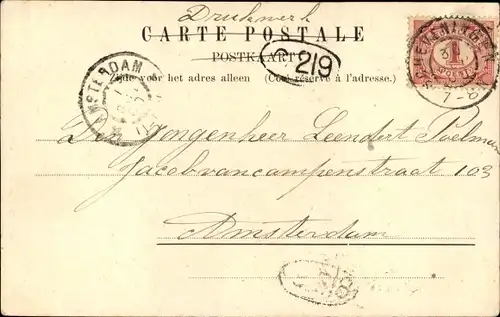 Drukwerk
CARTE POSTALE
POSTKAART
Zijde voor het adres alleen (Côté réservé à l'adresse.)
219
AMSTERDAM
SCHEVENINGEN
7-8
1
Den Jongenheer Leendert Poelman
Jacob van campenstraat 103
Amsterdam